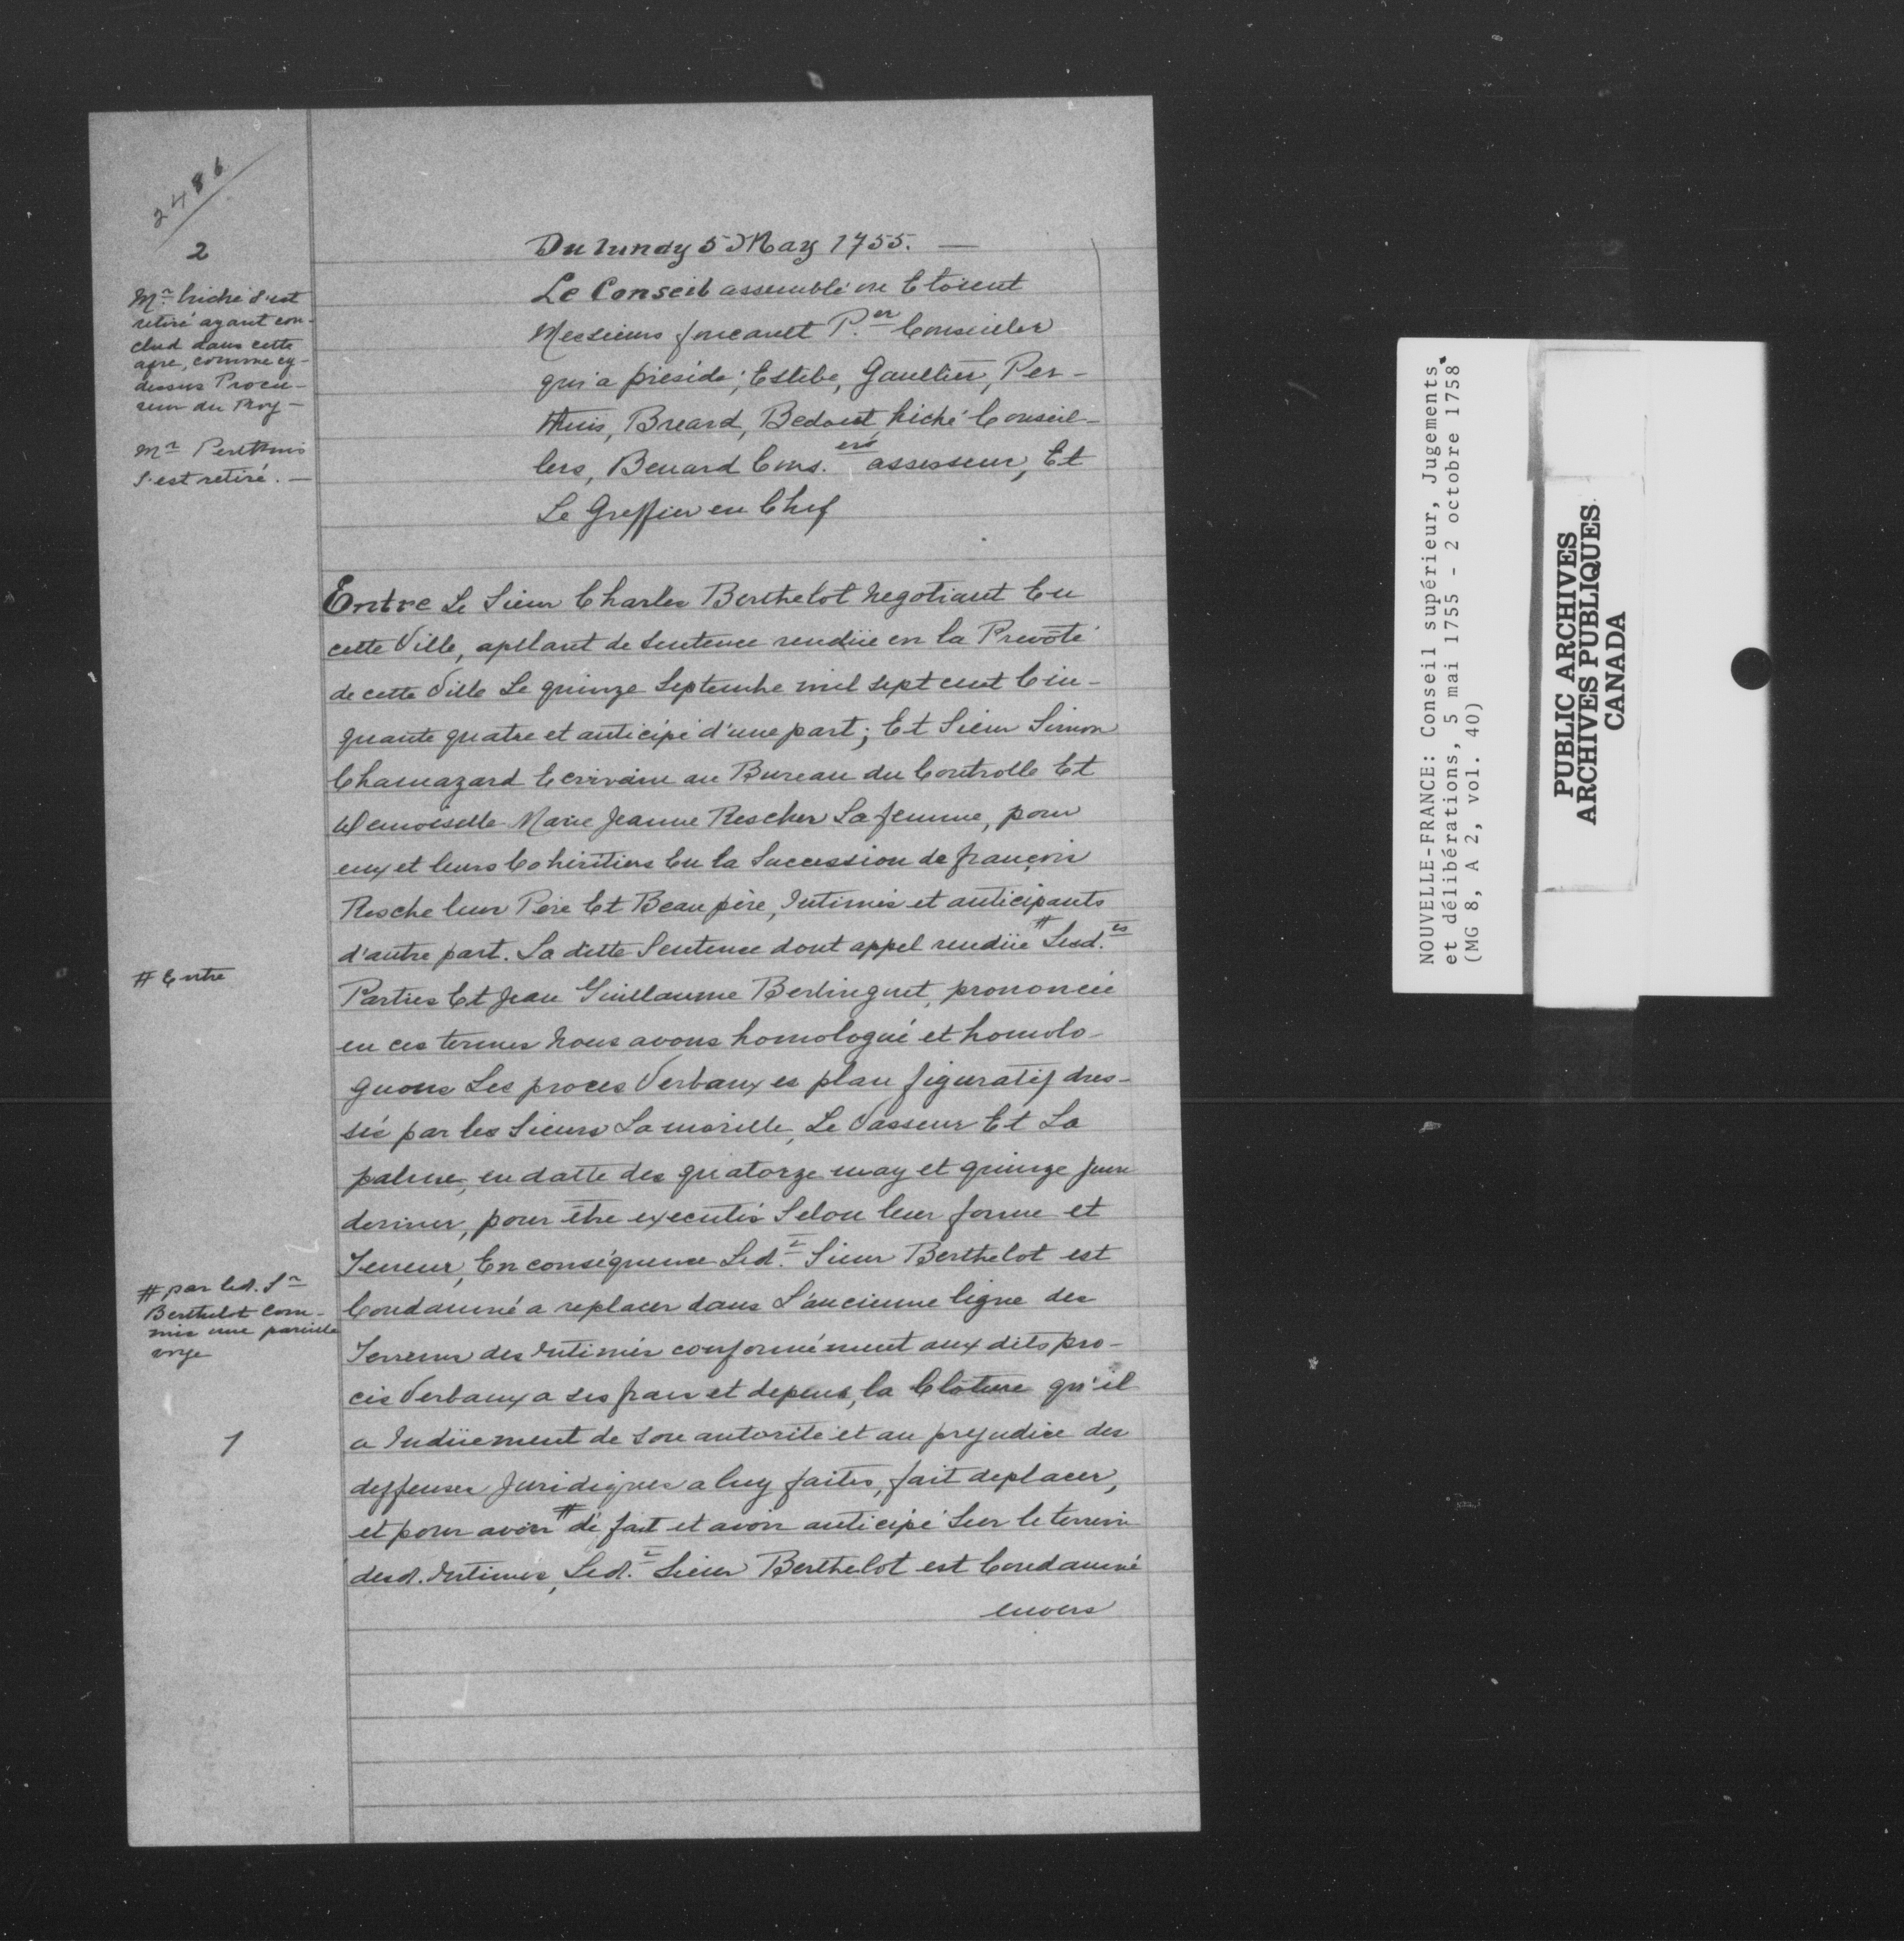 2486
2
Mr. hiché s'est
retiré ayant con-
clud dans cette
afre, comme cy-
dessus Procu-
reur du Roy -
Mr Perthuis
s'est retiré. -
Du lundy 5 May 1755. -
Le Conseil assemblé ou Etoient
Messieurs foucault P.er Conseiller
qui a présidé; Estebe, Gaultier, Per-
thuis, Breard, Bedout hiché Conseil-
lers, Benard Cons.er assesseur, Et
Le Greffier en Chef
Entre Le Sieur Charles Berthelot Negotiant En
cette Ville, apllant de Sentence rendüe en la Prevôté
de cette Ville Le quinze Septembre mil sept cent Cin-
quante quatre et anticipé d'une part; Et Sieur Simon
Chamazard Ecrivain au Bureau du Controlle Et
Demoiselle Marie Jeanne Rescher Sa femme, pour
eux et leurs Cohéritiers En la Succession de françois
Resche leur Pere Et Beau père, Intimés et anticipants
d'autre part. La ditte Sentence dont appel rendüe # Lesd.es
# Entre
Parties Et Jean Guillaume Berlinguet, prononcée
en ces termes Nous avons homologué et homolo-
guons Les proces Verbaux es plan figuratif dres-
sés par les Sieurs Lamorille, Le Vasseur Et La
palme, en datte des quatorze may et quinze Juin
dernier, pour être executés Selon leur forme et
Teneur, En conséquence Led.t Sieur Berthelot est
# par led. Sr
Berthelot com-
mis une pareille
Condamné a replacer dans L'ancienne ligne des
Terrein des Intimés conformément aux dits pro-
cés Verbaux a ses frais et depens, la Clôture qu'il
1
a Indüement de son autorité et au prejudice des
deffenses Juridiques a luy faites, fait deplacer,
et pour avoir # de fait et avoir anticipé Sur le terrein
desd. Intimés, Led.t Sieur Berthelot est Condamné
envers
NOUVELLE-FRANCE: Conseil supérieur, Jugements
et délibérations, 5 mai 1755 - 2 octobre 1758
(MG 8, A 2, vol. 40)
PUBLIC ARCHIVES
ARCHIVES PUBLIQUES
CANADA